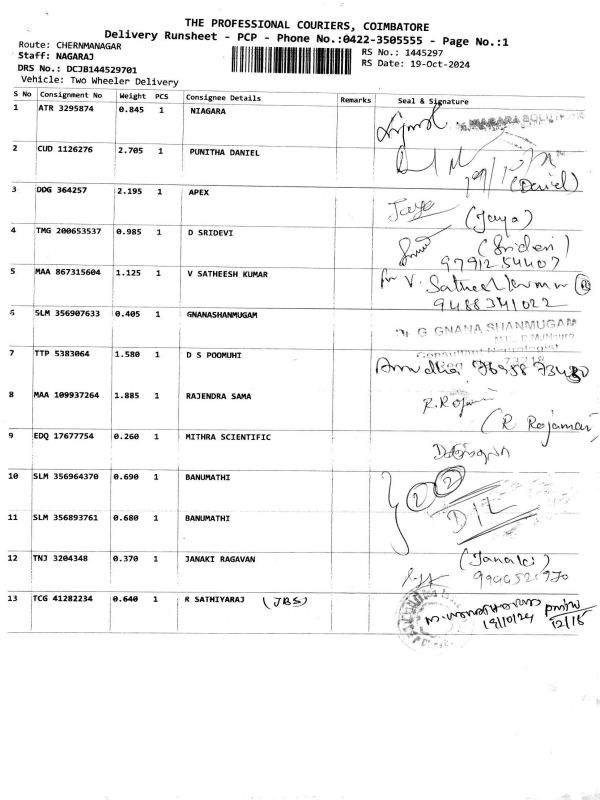 THE PROFESSIONAL COURIERS, COIMBATORE
Delivery Runsheet - PCP - Phone No.:0422-3505555 - Page No.:1
Route: CHERNMANAGAR
RS No.: 1445297
Staff: NAGARAJ
RS Date: 19-Oct-2024
DRS No.: DCJB144529701
Vehicle: Two Wheeler Delivery
S No Consignment No Weight PCS Consignee Details Remarks Seal & Signature
1 ATR 3295874 0.845 1 NIAGARA
2 CUD 1126276 2.705 1 PUNITHA DANIEL
(Daniel)
3 DDG 364257 2.195 1 APEX
Jaya (Jaya)
4 TMG 200653537 0.985 1 D SRIDEVI
(Sridevi)
9791254407
5 MAA 867315604 1.125 1 V SATHEESH KUMAR
for V. Satheesh kumar
9488341022
6 SLM 356907633 0.405 1 GNANASHANMUGAM
Dr G GNANA SHANMUGAM
Consultant Neurologist
7 TTP 5383064 1.580 1 D S POOMUHI
8 MAA 109937264 1.885 1 RAJENDRA SAMA
R.Rajamani
(R Rajamani
9 EDQ 17677754 0.260 1 MITHRA SCIENTIFIC
10 SLM 356964370 0.690 1 BANUMATHI
2 2
D/L
11 SLM 356893761 0.680 1 BANUMATHI
12 TNJ 3204348 0.370 1 JANAKI RAGAVAN
(Janaki)
13 TCG 41282234 0.640 1 R SATHIYARAJ (JBS)
19/10/24 12/15